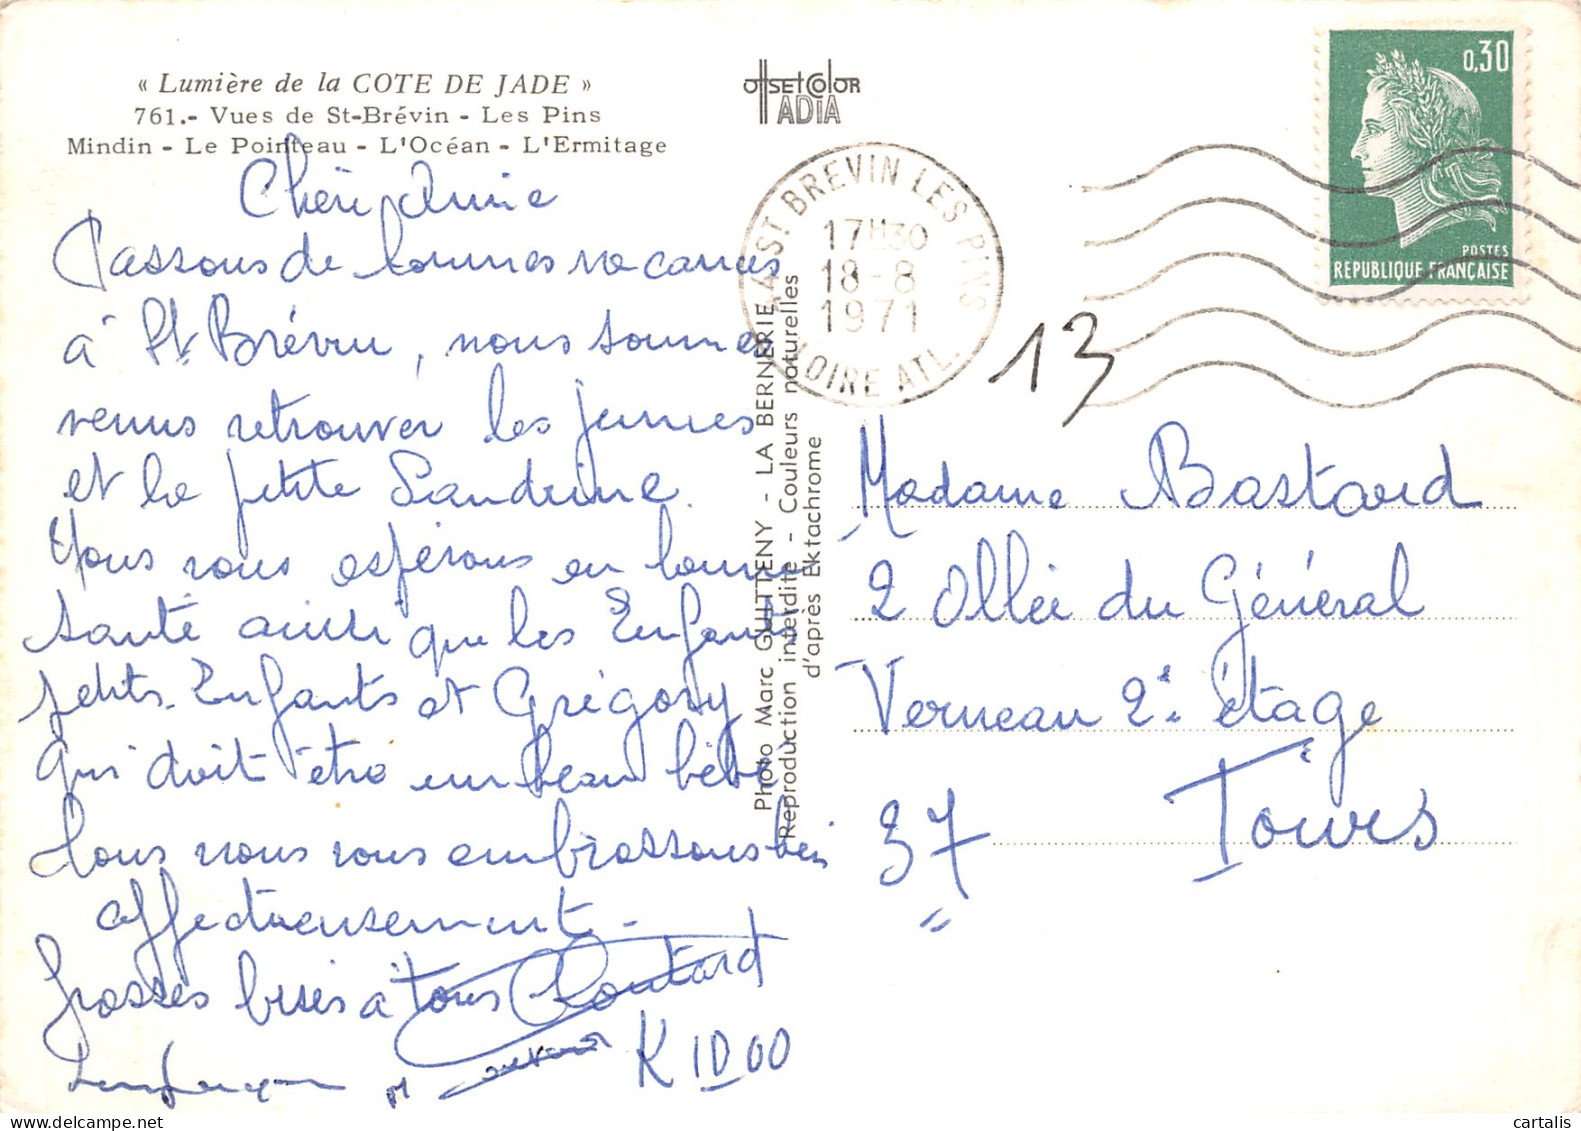 « Lumière de la COTE DE JADE »
761.- Vues de St-Brévin - Les Pins
Mindin - Le Pointeau - L'Océan - L'Ermitage
OffSET COLOR
ADIA
Chérie Annie
Passons de bonnes vacances
à St Brévin, nous sommes
venus retrouver les jeunes
et la petite Sandrine.
Nous vous espérons en bonne
santé ainsi que les Enfants
petits-Enfants et Grégory
qui doit être un beau bébé
Nous nous vous embrassons bien
affectueusement -
grosses bises à tous
K 1000
Photo Marc GUITTENY - LA BERNERIE
Reproduction interdite - Couleurs naturelles
d'après Ektachrome
A ST BREVIN LES PINS
17H30
18-8
1971
LOIRE ATL.
0,30
POSTES
REPUBLIQUE FRANÇAISE
13
Madame Bastard
2 Allée du Général
Verneau 2e étage
37 Tours
cartalis
delcampe.net